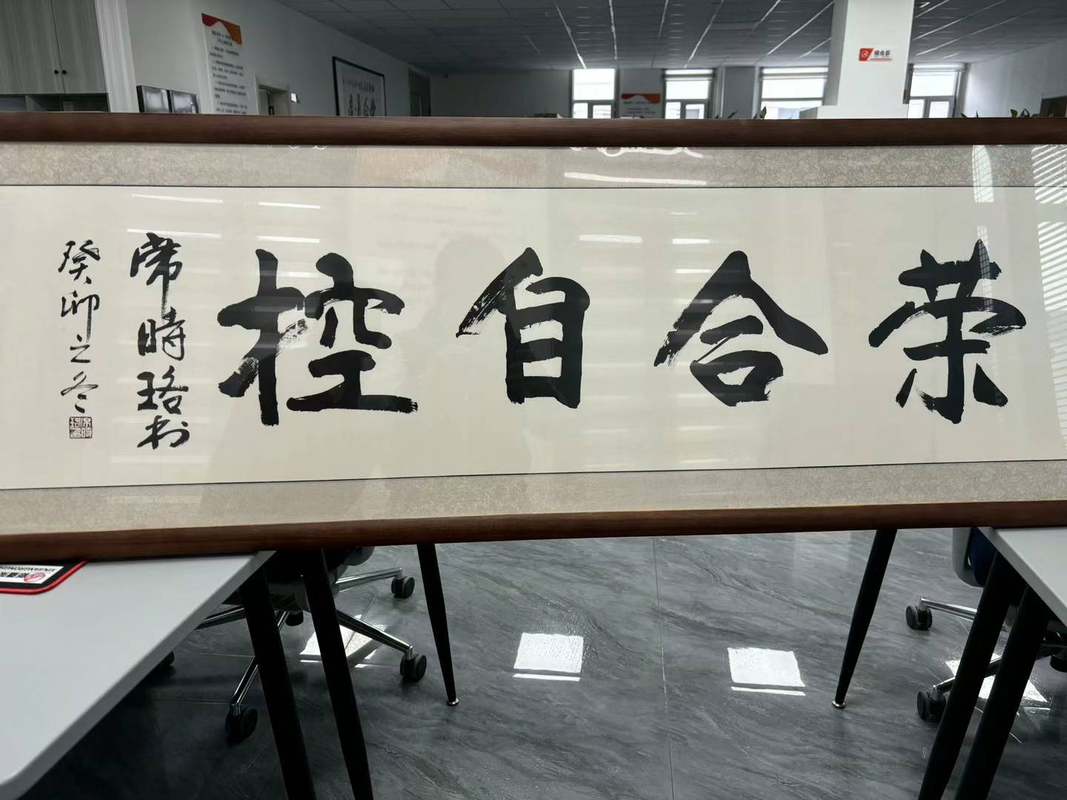 荣合自控
常時珞书
癸卯之冬